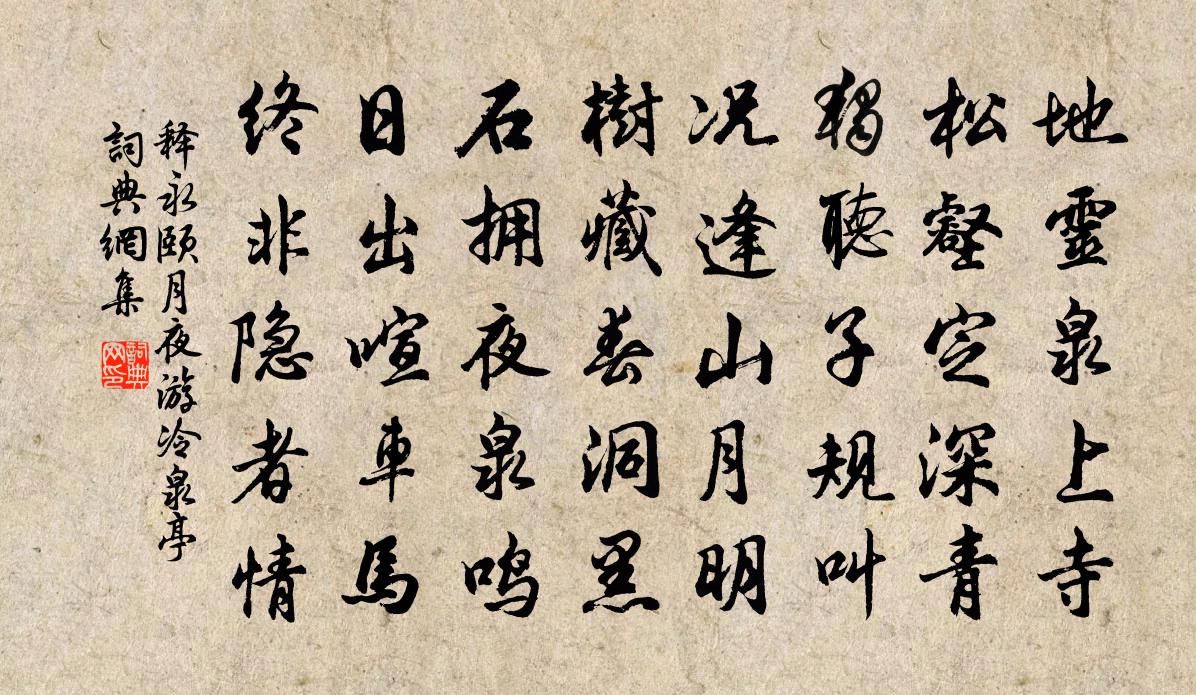 地靈泉上寺
松壑空深青
獨聽子規叫
况逢山月明
樹藏春洞黑
石拥夜泉鸣
日出喧車馬
終非隐者情
释永颐月夜游冷泉亭
詞典網集
詞典网印